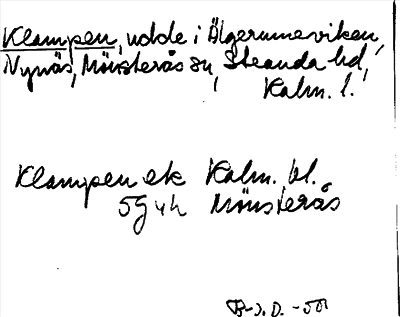 Klampen, udde i Älgerumeviken,
Nynäs, Mönsterås sn, Stranda hd,
Kalm. l.
Klampen ek Kalm. bl.
5G 4h Mönsterås